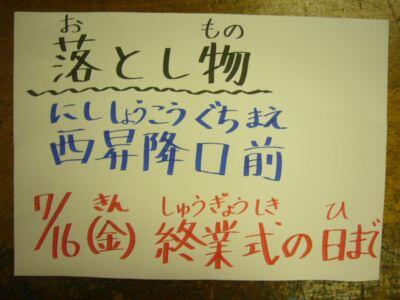 お　もの
落とし物
にししょうこうぐちまえ
西昇降口前
きん　しゅうぎょうしき　ひ
7/16(金) 終業式の日まで